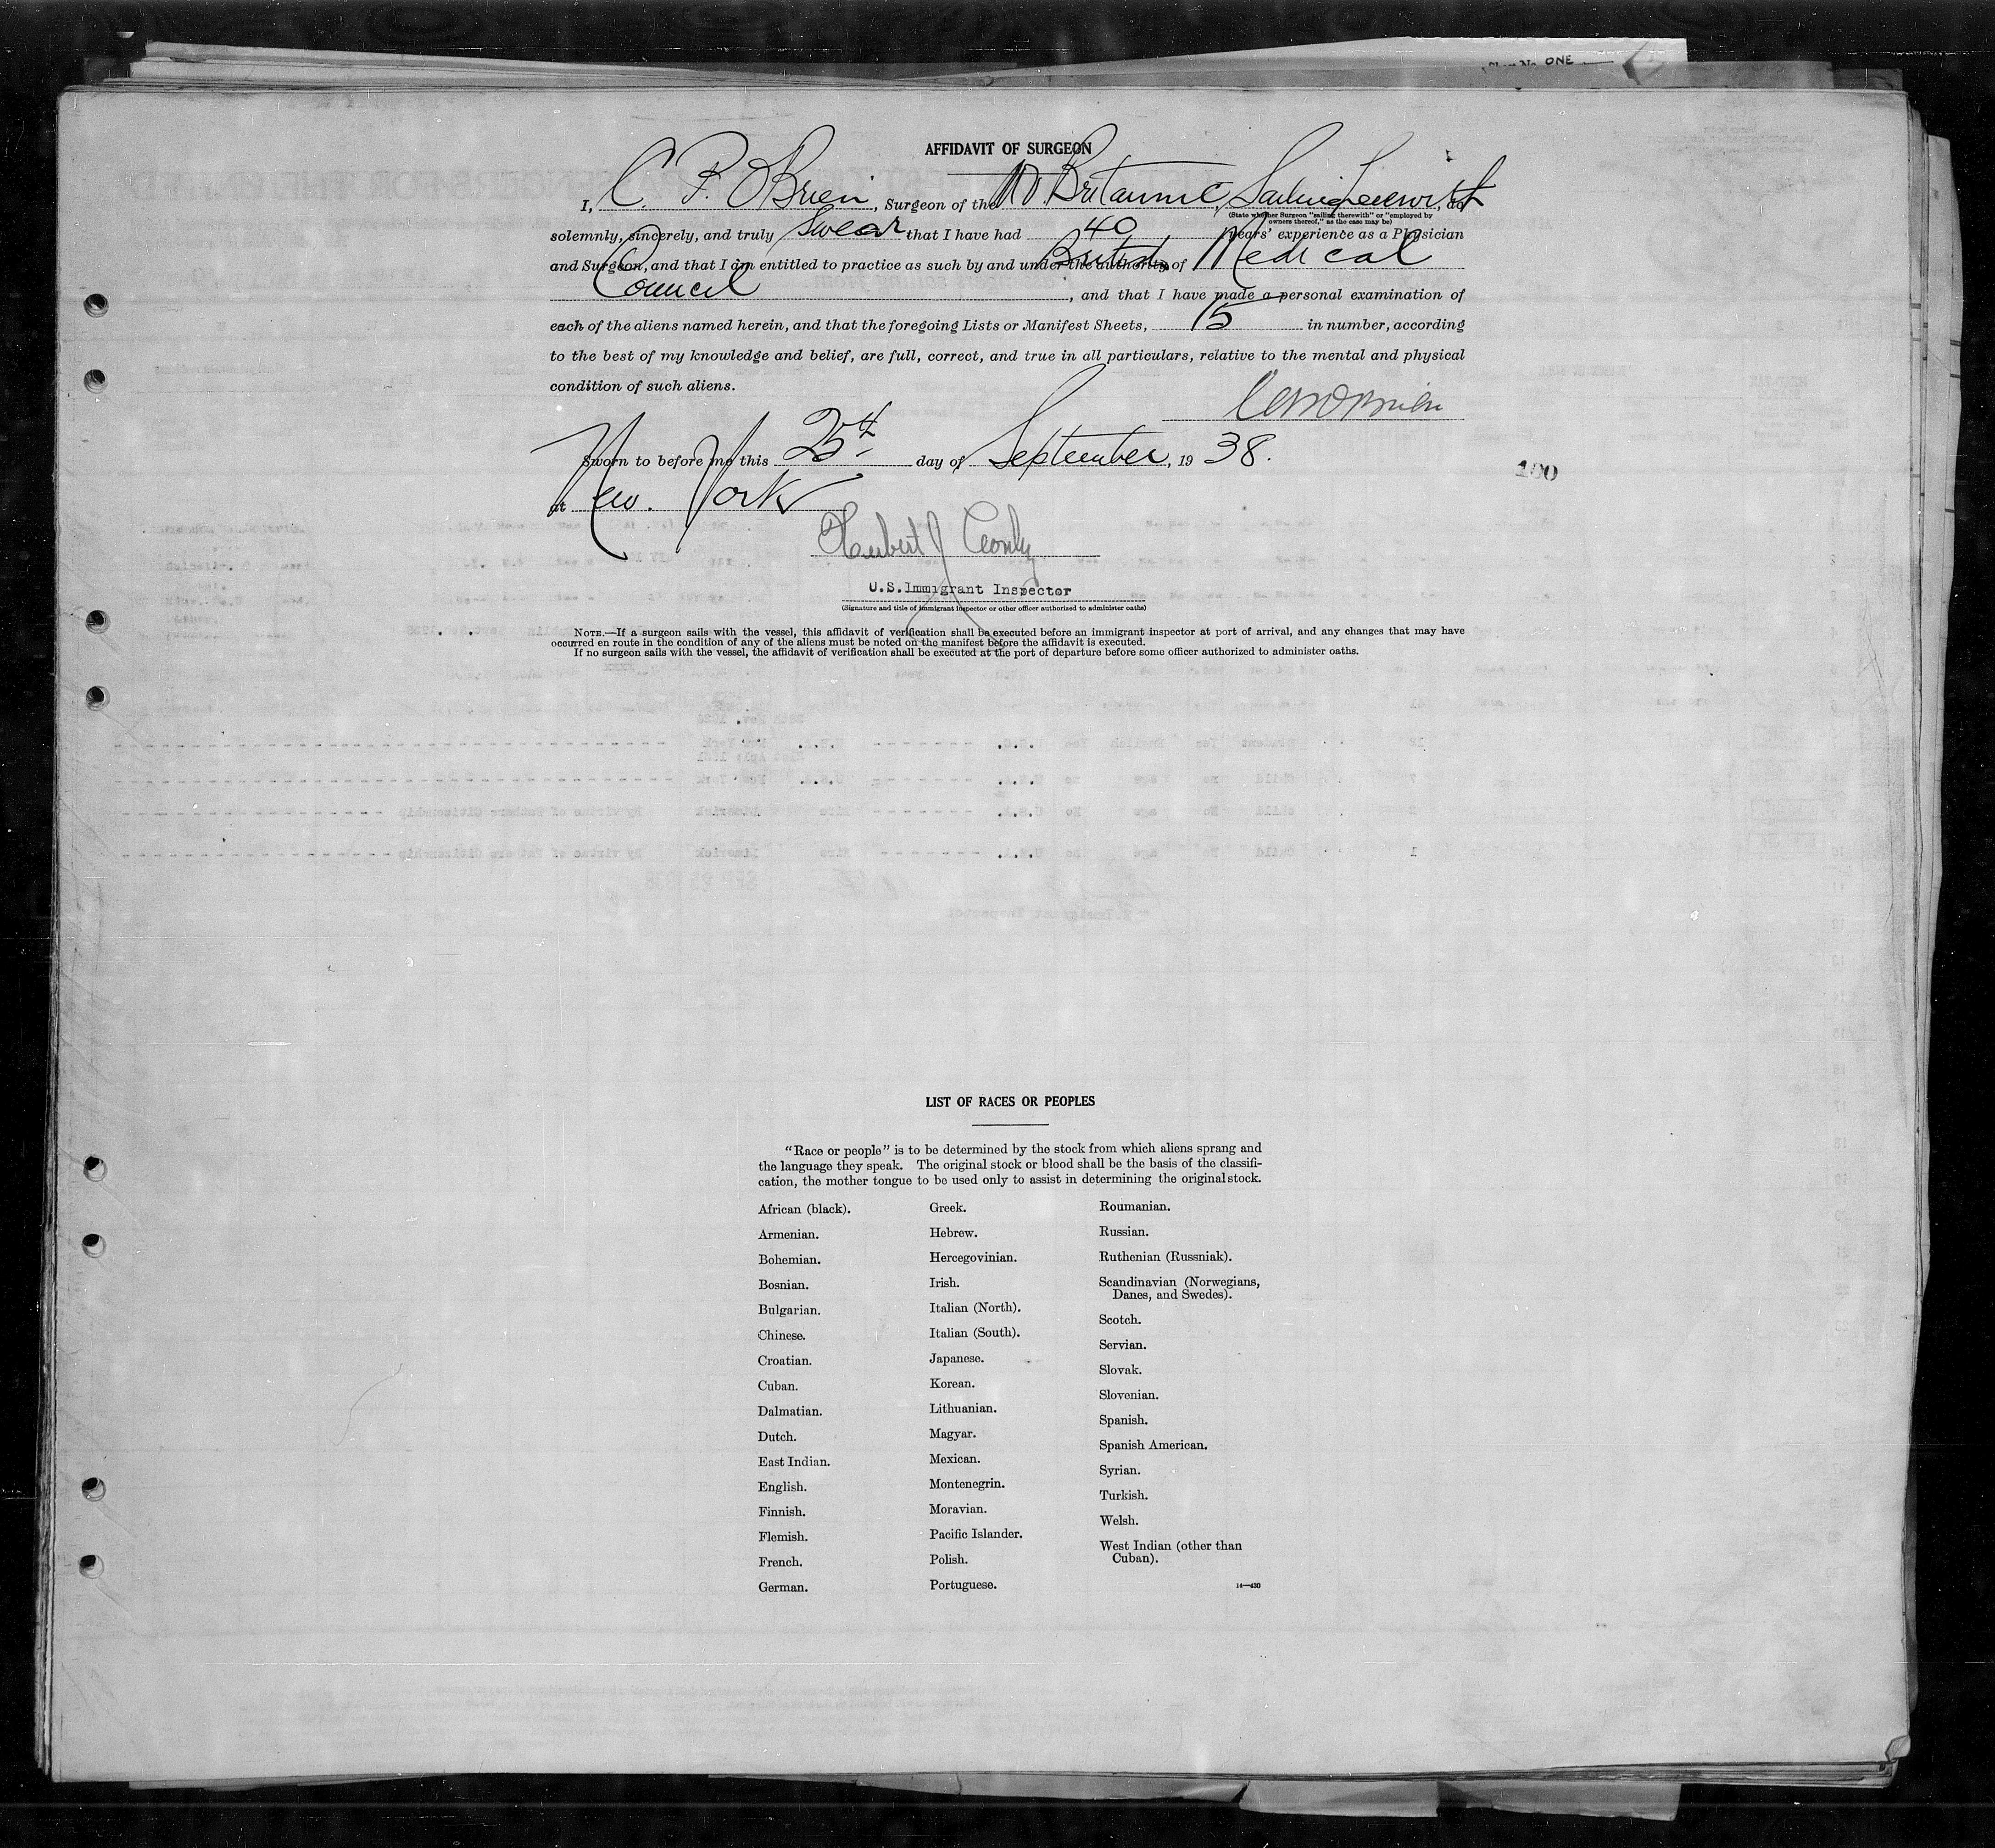 ONE
AFFIDAVIT OF SURGEON
I, C. P. OBrien, Surgeon of the MV. Britannic, Sailing therewith, do
(State whether Surgeon "sailing therewith" or "employed by
owners thereof," as the case may be)
solemnly, sincerely, and truly Swear that I have had 40 years' experience as a Physician
and Surgeon, and that I am entitled to practice as such by and under the authority of British Medical
Council, and that I have made a personal examination of
each of the aliens named herein, and that the foregoing Lists or Manifest Sheets, 15 in number, according
to the best of my knowledge and belief, are full, correct, and true in all particulars, relative to the mental and physical
condition of such aliens.
Sworn to before me this 25th day of September, 1938.
100
at New York
Hubert J
U.S. Immigrant Inspector
(Signature and title of immigrant inspector or other officer authorized to administer oaths)
NOTE.—If a surgeon sails with the vessel, this affidavit of verification shall be executed before an immigrant inspector at port of arrival, and any changes that may have
occurred en route in the condition of any of the aliens must be noted on the manifest before the affidavit is executed.
If no surgeon sails with the vessel, the affidavit of verification shall be executed at the port of departure before some officer authorized to administer oaths.
LIST OF RACES OR PEOPLES
"Race or people" is to be determined by the stock from which aliens sprang and
the language they speak. The original stock or blood shall be the basis of the classifi-
cation, the mother tongue to be used only to assist in determining the original stock.
African (black).
Armenian.
Bohemian.
Bosnian.
Bulgarian.
Chinese.
Croatian.
Cuban.
Dalmatian.
Dutch.
East Indian.
English.
Finnish.
Flemish.
French.
German.
Greek.
Hebrew.
Hercegovinian.
Irish.
Italian (North).
Italian (South).
Japanese.
Korean.
Lithuanian.
Magyar.
Mexican.
Montenegrin.
Moravian.
Pacific Islander.
Polish.
Portuguese.
Roumanian.
Russian.
Ruthenian (Russniak).
Scandinavian (Norwegians,
Danes, and Swedes).
Scotch.
Servian.
Slovak.
Slovenian.
Spanish.
Spanish American.
Syrian.
Turkish.
Welsh.
West Indian (other than
Cuban).
14—430